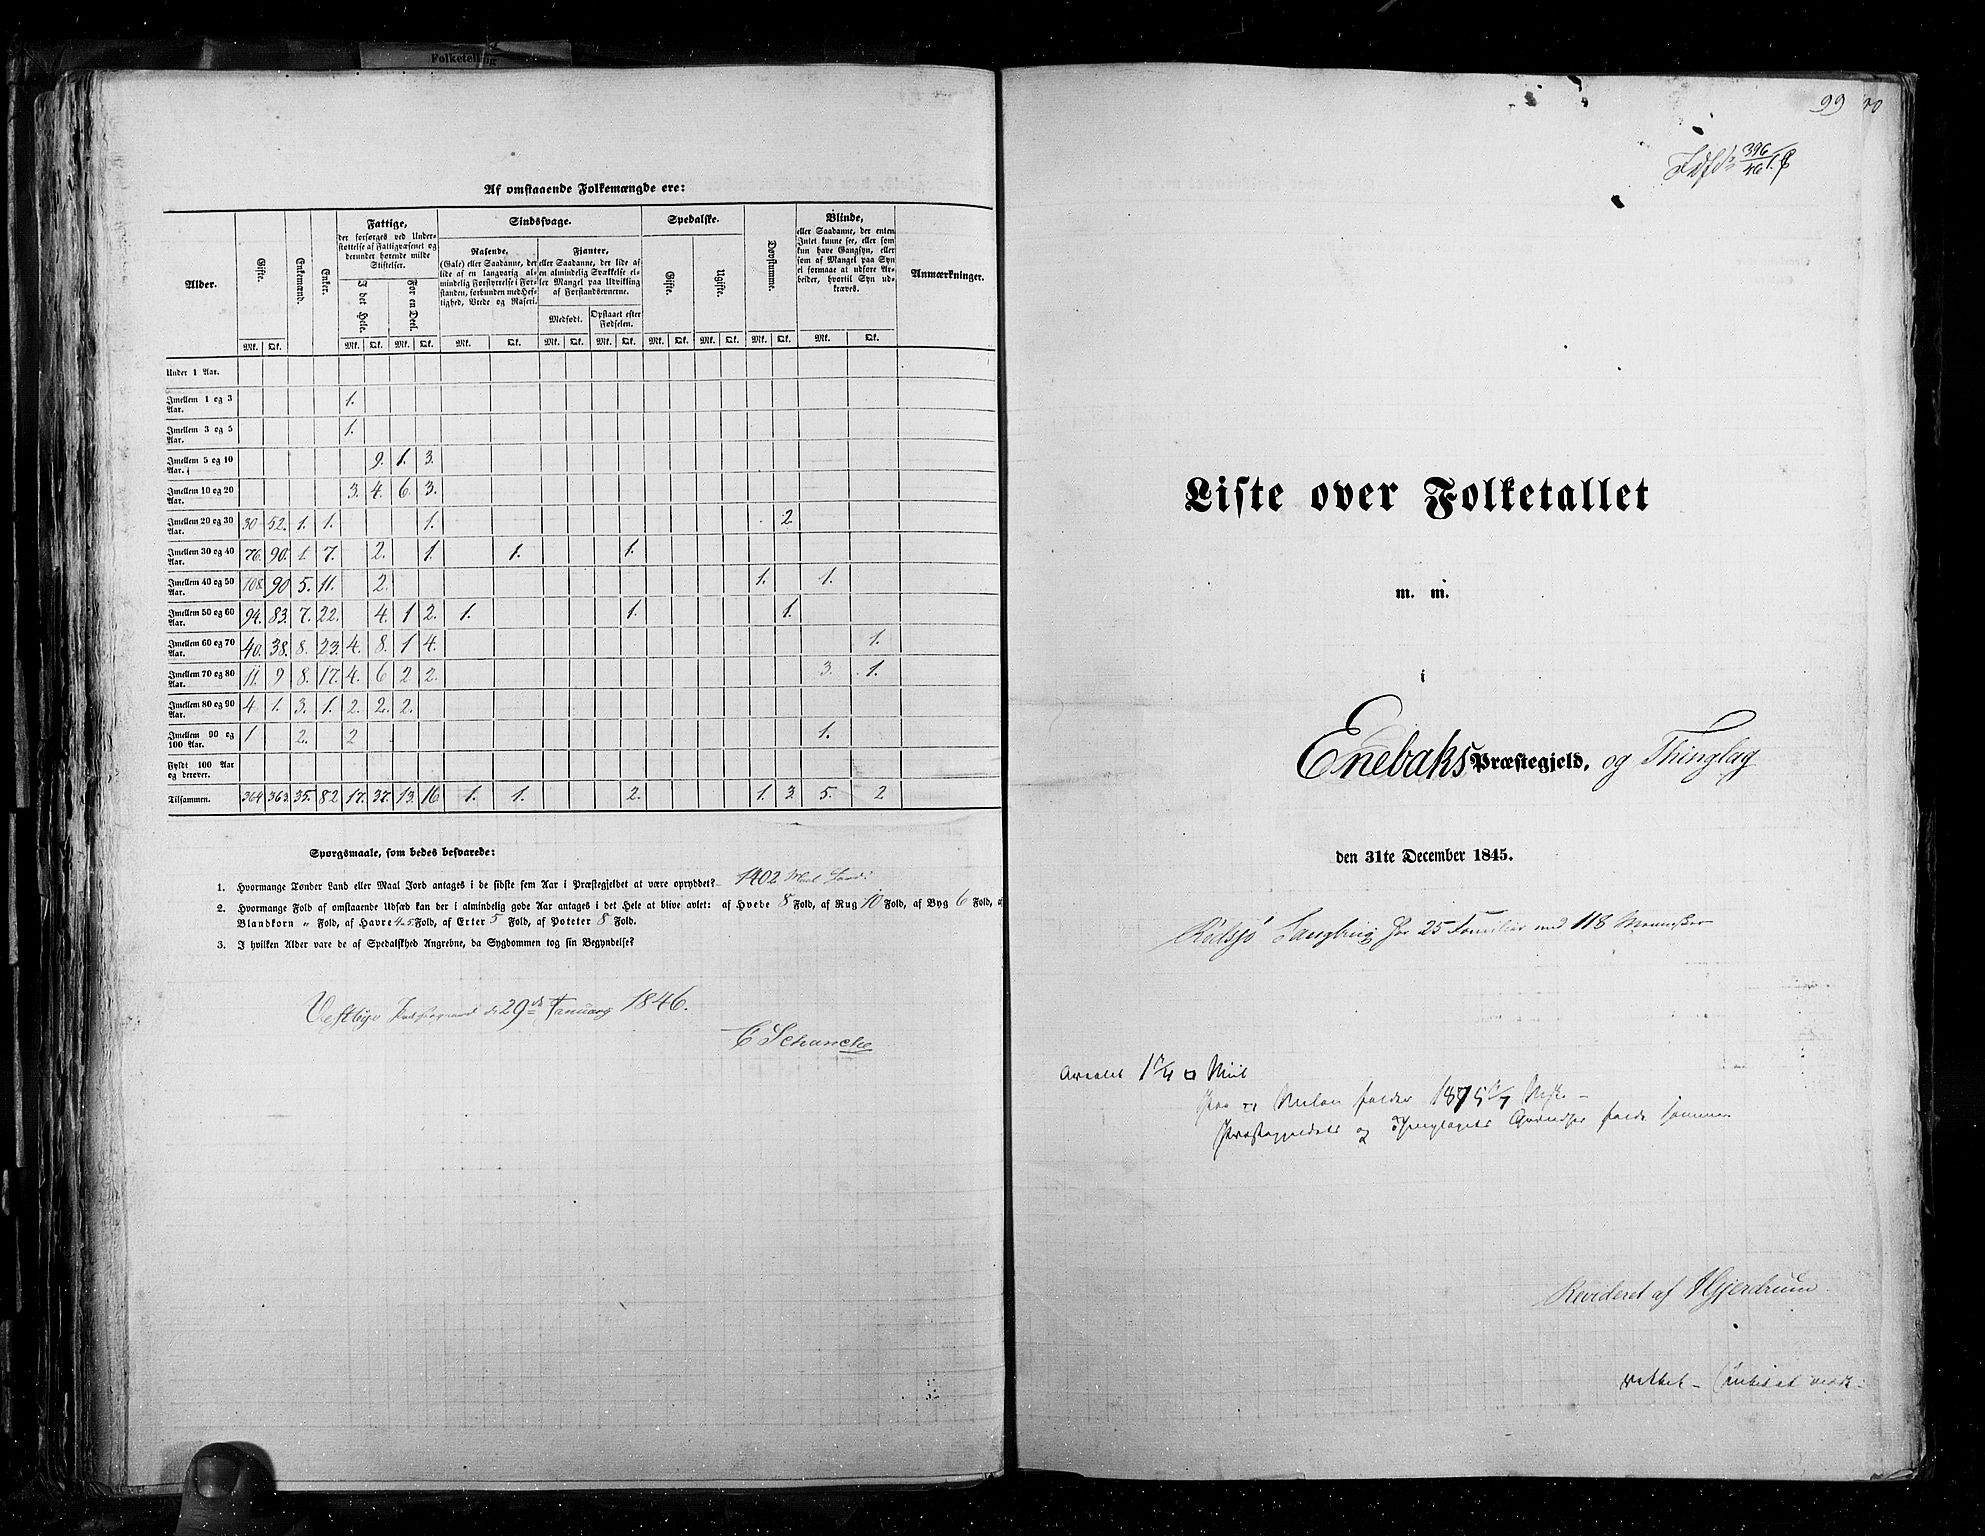 Folketelling
Af omstaaende Folkemængde ere:
Alder.
Gifte.
Enkemænd.
Enker.
Fattige,
der forsørges ved Under-
støttelse af Fattigvæsenet og
derunder hørende milde
Stiftelser.
I det Hele.
For en Deel.
Sindssvage.
Rasende.
(Gale) eller Saadanne, der
lide af en langvarig al-
mindelig Forstyrrelse i For-
standen, forbunden med Hef-
tighed, Vrede og Raseri.
Fjanter,
eller Saadanne, der lide af
en almindelig Svækkelse el-
ler Mangel paa Udvikling
af Forstandsevnerne.
Medfødt.
Opstaaet efter
Fødselen.
Spedalske.
Gifte.
Ugifte.
Døvstumme.
Blinde,
eller Saadanne, der enten
Intet kunne see, eller som
kun have Gangsyn, eller
som af Mangel paa Syn
ei formaae at udføre Ar-
beider, hvortil Syn ud-
kræves.
Anmærkninger.
Mk. Qk. Mk. Qk. Mk. Qk. Mk. Qk. Mk. Qk. Mk. Qk. Mk. Qk. Mk. Qk. Mk. Qk. Mk. Qk.
Under 1 Aar.
Imellem 1 og 3 Aar. 1.
Imellem 3 og 5 Aar. 1.
Imellem 5 og 10 Aar. 9. 1. 3.
Imellem 10 og 20 Aar. 3. 4. 6. 3.
Imellem 20 og 30 Aar. 30 52. 1. 1. 1. 2
Imellem 30 og 40 Aar. 76. 90. 1. 7. 2. 1. 1. 1.
Imellem 40 og 50 Aar. 108. 90 5. 11. 2. 1. 1.
Imellem 50 og 60 Aar. 94. 83. 7. 22. 4. 1 2. 1. 1. 1.
Imellem 60 og 70 Aar. 40. 38. 8. 23. 4. 8. 1 4. 1.
Imellem 70 og 80 Aar. 11. 9 8. 17. 4. 6 2 2. 3. 1.
Imellem 80 og 90 Aar. 4 1. 3. 1. 2. 2. 2.
Imellem 90 og 100 Aar. 1 2. 2 1.
Fyldt 100 Aar og derover.
Tilsammen. 364 363. 35. 82 17. 37. 13. 16 1. 1. 2. 1. 3. 5. 2
Spørgsmaale, som bedes besvarede:
1. Hvormange Tønder Land eller Maal Jord antages i de sidste fem Aar i Præstegjeldet at være opryddet? 1402 Maal Jord.
2. Hvormange Fold af omstaaende Udsæd kan der i almindelig gode Aar antages i det Hele at blive avlet: af Hvede 8 Fold, af Rug 10 Fold, af Byg 6 Fold, af
Blandkorn " Fold, af Havre 4 a 5 Fold, af Erter 5 Fold, af Poteter 8 Fold.
3. I hvilken Alder vare de af Spedalskhed Angrebne, da Sygdommen tog sin Begyndelse?
Vestby Præstegaard d. 29de Januar 1846.
C Schancke
99
396/46
Liste over Folketallet
m. m.
i
Enebaks Præstegjeld, og Thinglag
den 31te December 1845.
Langbrug har 25 Familier med 118 Mennesker
Arealet 1 1/4 □ Miil
Paa □ Milen falder 1875 Msk.
Præstegjeldets og Thinglagets Grændser falde sammen
Revideret af Hjerdrum
rettet